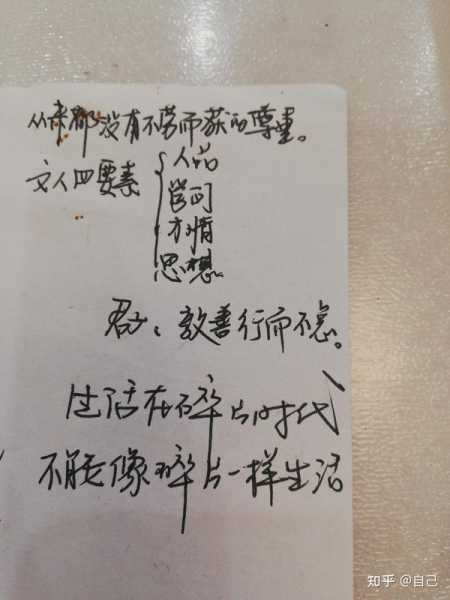 从来都没有不劳而获的尊重。
文人四要素
人品
学问
才情
思想
君子：敦善行而不怠。
生活在碎片时代
不能像碎片一样生活
知乎 @自己